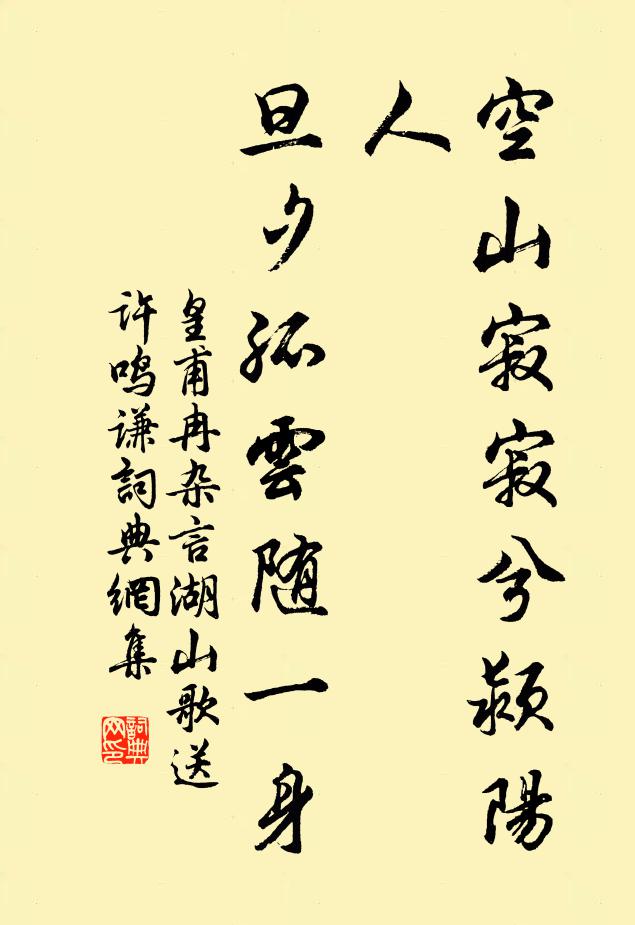 空山寂寂兮颍陽
人
旦夕孤雲随一身
皇甫冉杂言湖山歌送
许鸣谦詞典網集
詞典网印